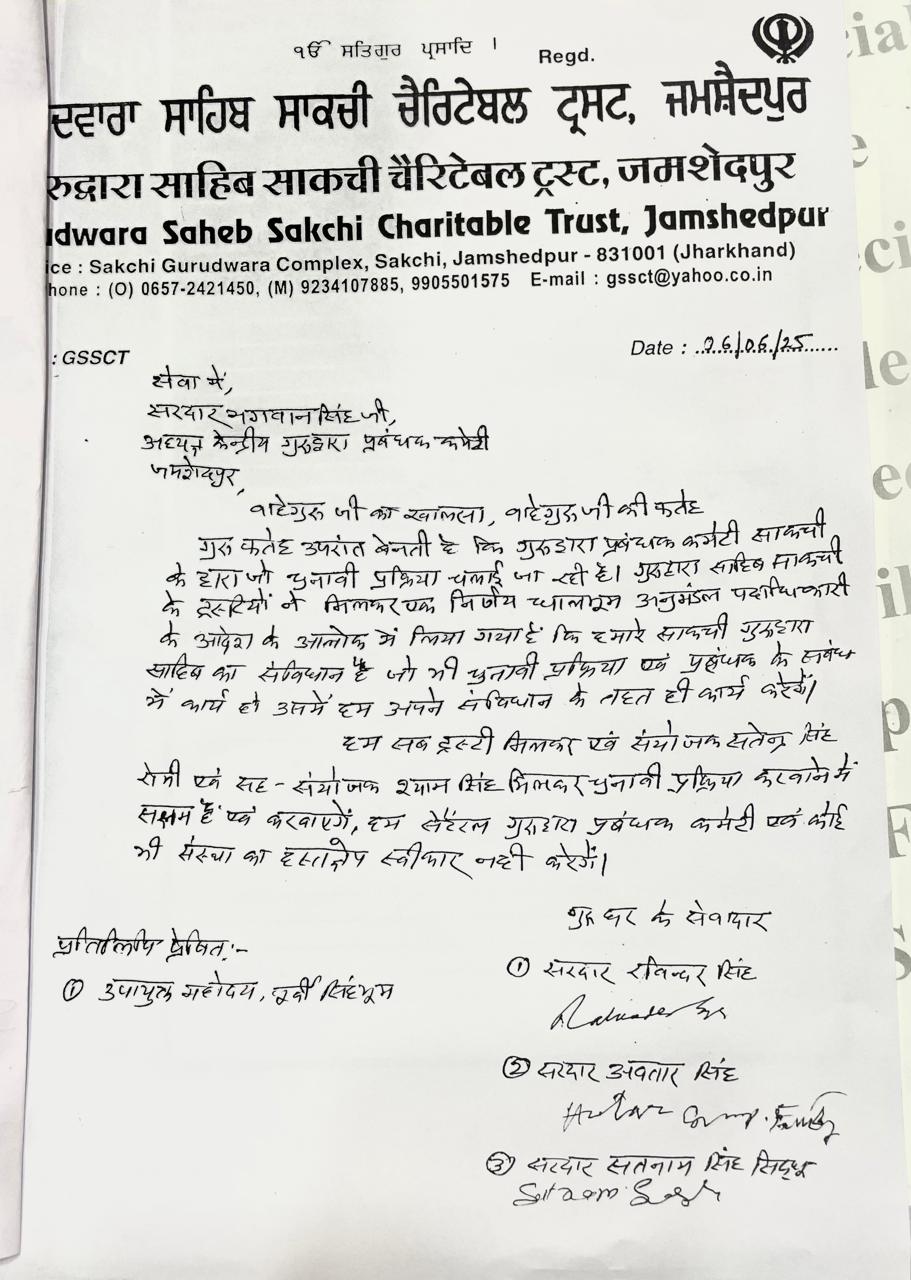 ੴ ਸਤਿਗੁਰ ਪ੍ਰਸਾਦਿ ।
Regd.
ਦਵਾਰਾ ਸਾਹਿਬ ਸਾਕਚੀ ਚੈਰਿਟੇਬਲ ਟ੍ਰਸਟ, ਜਮਸ਼ੈਦਪੁਰ
रुद्वारा साहिब साकची चैरिटेबल ट्रस्ट, जमशेदपुर
dwara Saheb Sakchi Charitable Trust, Jamshedpur
ice : Sakchi Gurudwara Complex, Sakchi, Jamshedpur - 831001 (Jharkhand)
hone : (O) 0657-2421450, (M) 9234107885, 9905501575 E-mail : gssct@yahoo.co.in
: GSSCT
Date : 06/06/25
सेवा में,
सरदार भगवान सिंह जी,
अध्यक्ष केन्द्रीय गुरुद्वारा प्रबंधक कमेटी
जमशेदपुर,
वाहेगुरु जी का खालसा, वाहेगुरु जी की फतेह
गुरु फतेह उपरांत बेनती है कि गुरुद्वारा प्रबंधक कमेटी साकची
के द्वारा जो चुनावी प्रक्रिया चलाई जा रही है। गुरुद्वारा साहिब साकची
के ट्रस्टियों ने मिलकर एक निर्णय धालभूम अनुमंडल पदाधिकारी
के आदेश के आलोक में लिया गया है कि हमारे साकची गुरुद्वारा
साहिब का संविधान है जो भी चुनावी प्रक्रिया एवं प्रबंधक के संबंध
में कार्य हो उसमें हम अपने संविधान के तहत ही कार्य करेगें।
हम सब ट्रस्टी मिलकर एवं संयोजक सतेन्द्र सिंह
रोमी एवं सह-संयोजक श्याम सिंह मिलकर चुनावी प्रक्रिया करवाने में
सक्षम है एवं करवाएगें, हम सेंट्रल गुरुद्वारा प्रबंधक कमेटी एवं कोई
भी संस्था का हस्तक्षेप स्वीकार नही करेगें।
गुरु घर के सेवादार
प्रतिलिपि प्रेषित:-
① उपायुक्त महोदय, पूर्वी सिंहभूम
① सरदार रविन्दर सिंह
② सरदार अवतार सिंह
③ सरदार सतनाम सिंह सिद्धू